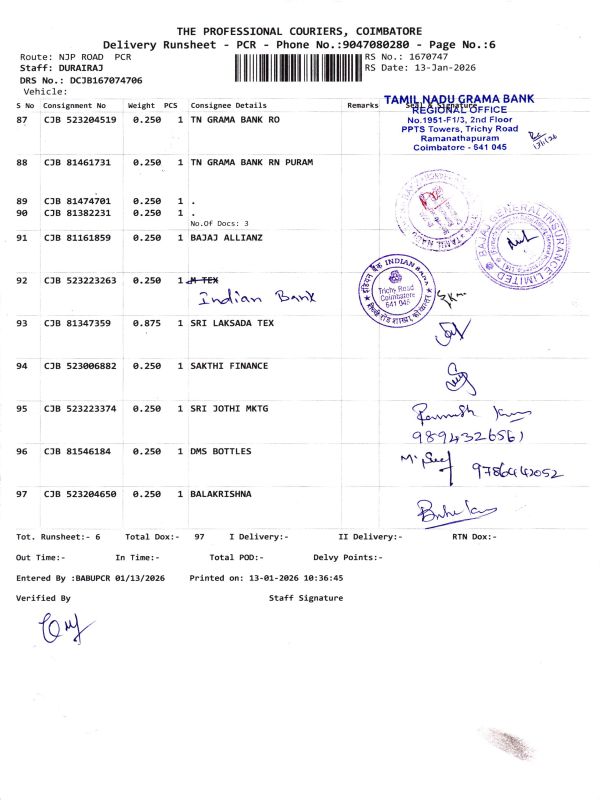 THE PROFESSIONAL COURIERS, COIMBATORE
Delivery Runsheet - PCR - Phone No.:9047080280 - Page No.:6
Route: NJP ROAD PCR RS No.: 1670747
Staff: DURAIRAJ RS Date: 13-Jan-2026
DRS No.: DCJB167074706
Vehicle:
S No Consignment No Weight PCS Consignee Details Remarks Seal & Signature
TAMIL NADU GRAMA BANK
REGIONAL OFFICE
No.1951-F1/3, 2nd Floor
PPTS Towers, Trichy Road
Ramanathapuram
Coimbatore - 641 045
87 CJB 523204519 0.250 1 TN GRAMA BANK RO
88 CJB 81461731 0.250 1 TN GRAMA BANK RN PURAM
89 CJB 81474701 0.250 1 .
90 CJB 81382231 0.250 1 .
No.Of Docs: 3
BAJAJ GENERAL INSURANCE LIMITED
91 CJB 81161859 0.250 1 BAJAJ ALLIANZ
92 CJB 523223263 0.250 1 M TEX
Indian Bank
इंडियन बैंक INDIAN BANK
Trichy Road
Coimbatore
641 045
93 CJB 81347359 0.875 1 SRI LAKSADA TEX
94 CJB 523006882 0.250 1 SAKTHI FINANCE
95 CJB 523223374 0.250 1 SRI JOTHI MKTG
9894326561
96 CJB 81546184 0.250 1 DMS BOTTLES
9786442052
97 CJB 523204650 0.250 1 BALAKRISHNA
Tot. Runsheet:- 6 Total Dox:- 97 I Delivery:- II Delivery:- RTN Dox:-
Out Time:- In Time:- Total POD:- Delvy Points:-
Entered By :BABUPCR 01/13/2026 Printed on: 13-01-2026 10:36:45
Verified By Staff Signature